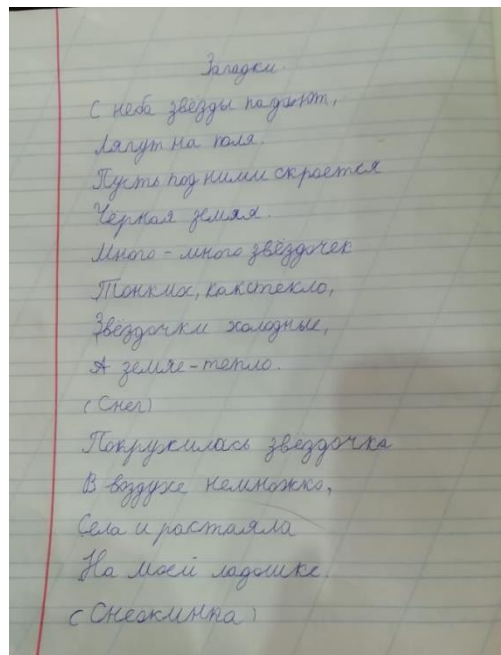 Загадки.
С неба звёзды падают,
Лягут на поля.
Пусть под ними скроется
Чёрная земля.
Много-много звёздочек
Тонких, как стекло,
Звёздочки холодные,
А земле-тепло.
(Снег)
Покружилась звёздочка
В воздухе немножко,
Села и растаяла
На моей ладошке.
(Снежинка)